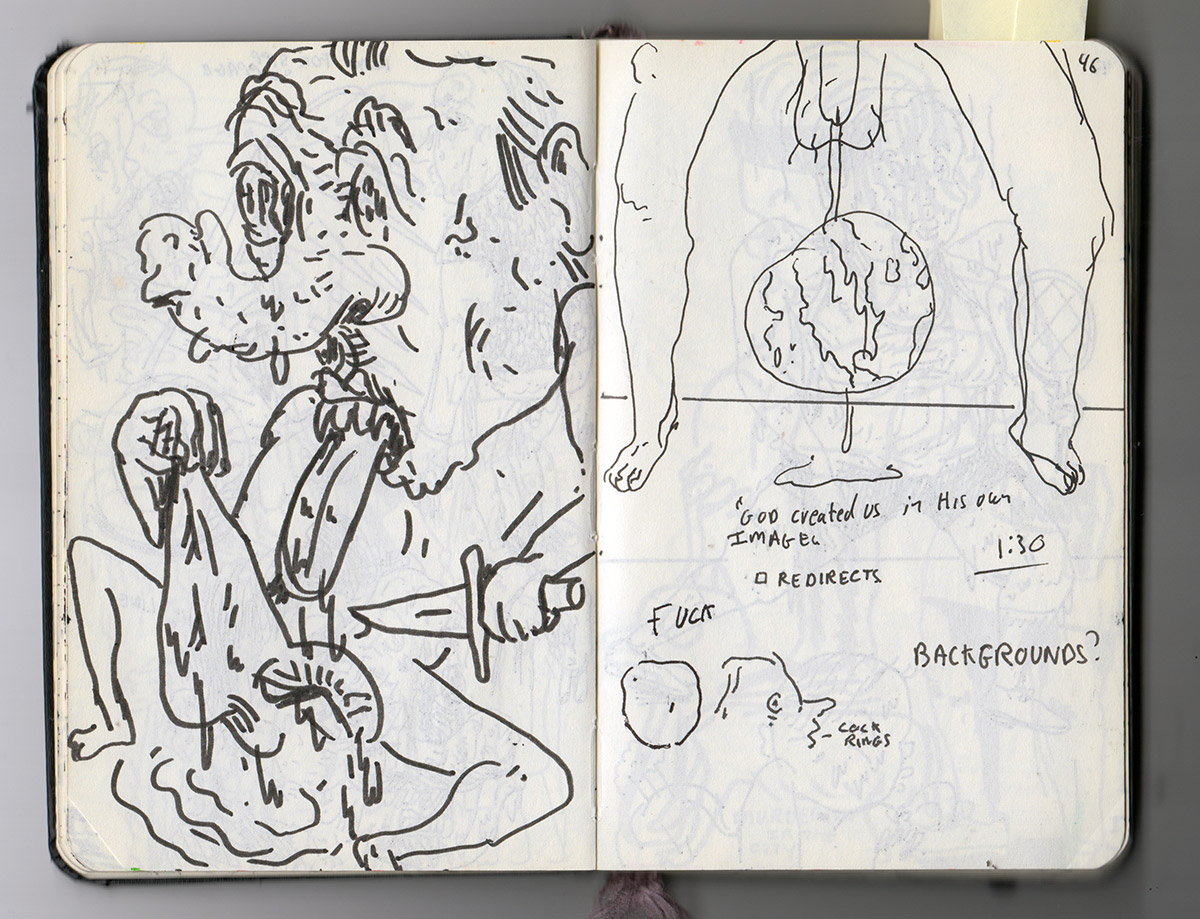 46
"GOD created us in His own
IMAGE"
□ REDIRECTS
1:30
FUCK
BACKGROUNDS?
- COCK
RINGS